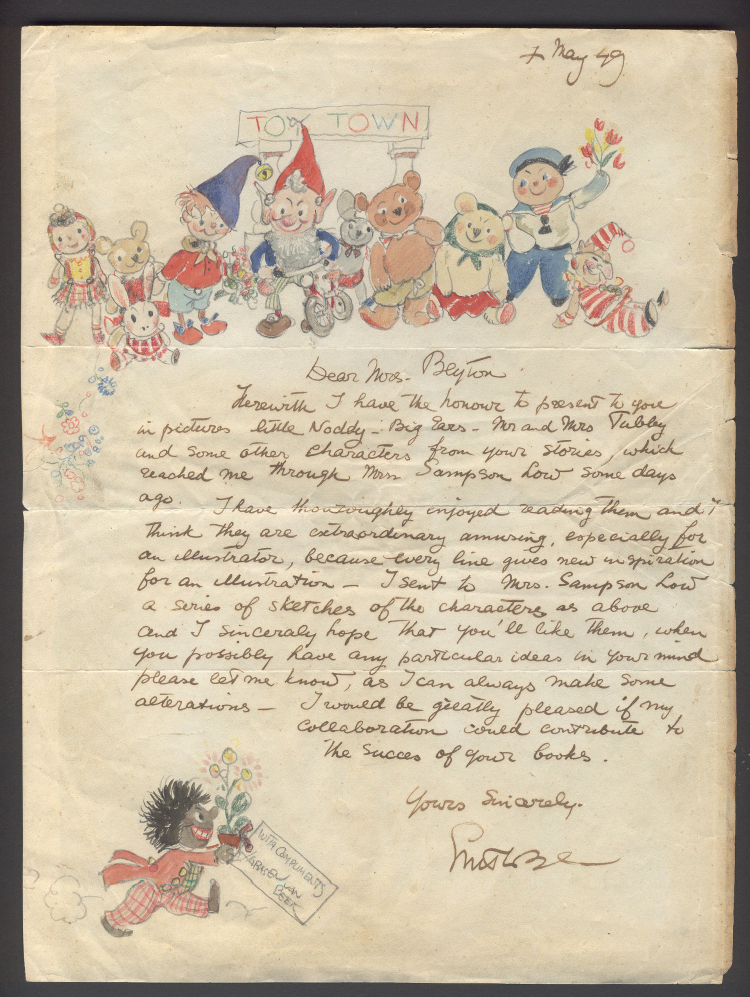 7 May 49
TOY TOWN
Dear Mrs. Blyton
Herewith I have the honour to present to you
in pictures little Noddy - Big Ears - Mr and Mrs Tubby
and some other characters from your stories, which
reached me through Mrs Sampson Low some days
ago. I have thouroughly injoyed reading them and I
think they are extraordinary amusing, especially for
an illustrator, because every line gives new inspiration
for an illustration — I sent to Mrs. Sampson Low
a series of sketches of the characters as above
and I sinceraly hope that you'll like them, when
you possibly have any particular ideas in your mind
please let me know, as I can always make some
alterations — I would be greatly pleased if my
collaboration could contribute to
the succes of your books.
Yours Sincerely.
WITH COMPLIMENTS
HARMSEN VAN
BEEK